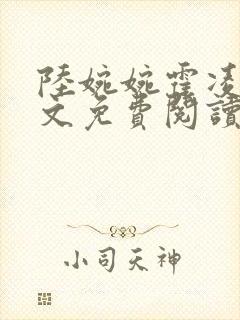 陸婉婉霍凌
文免費閱讀
小司天神